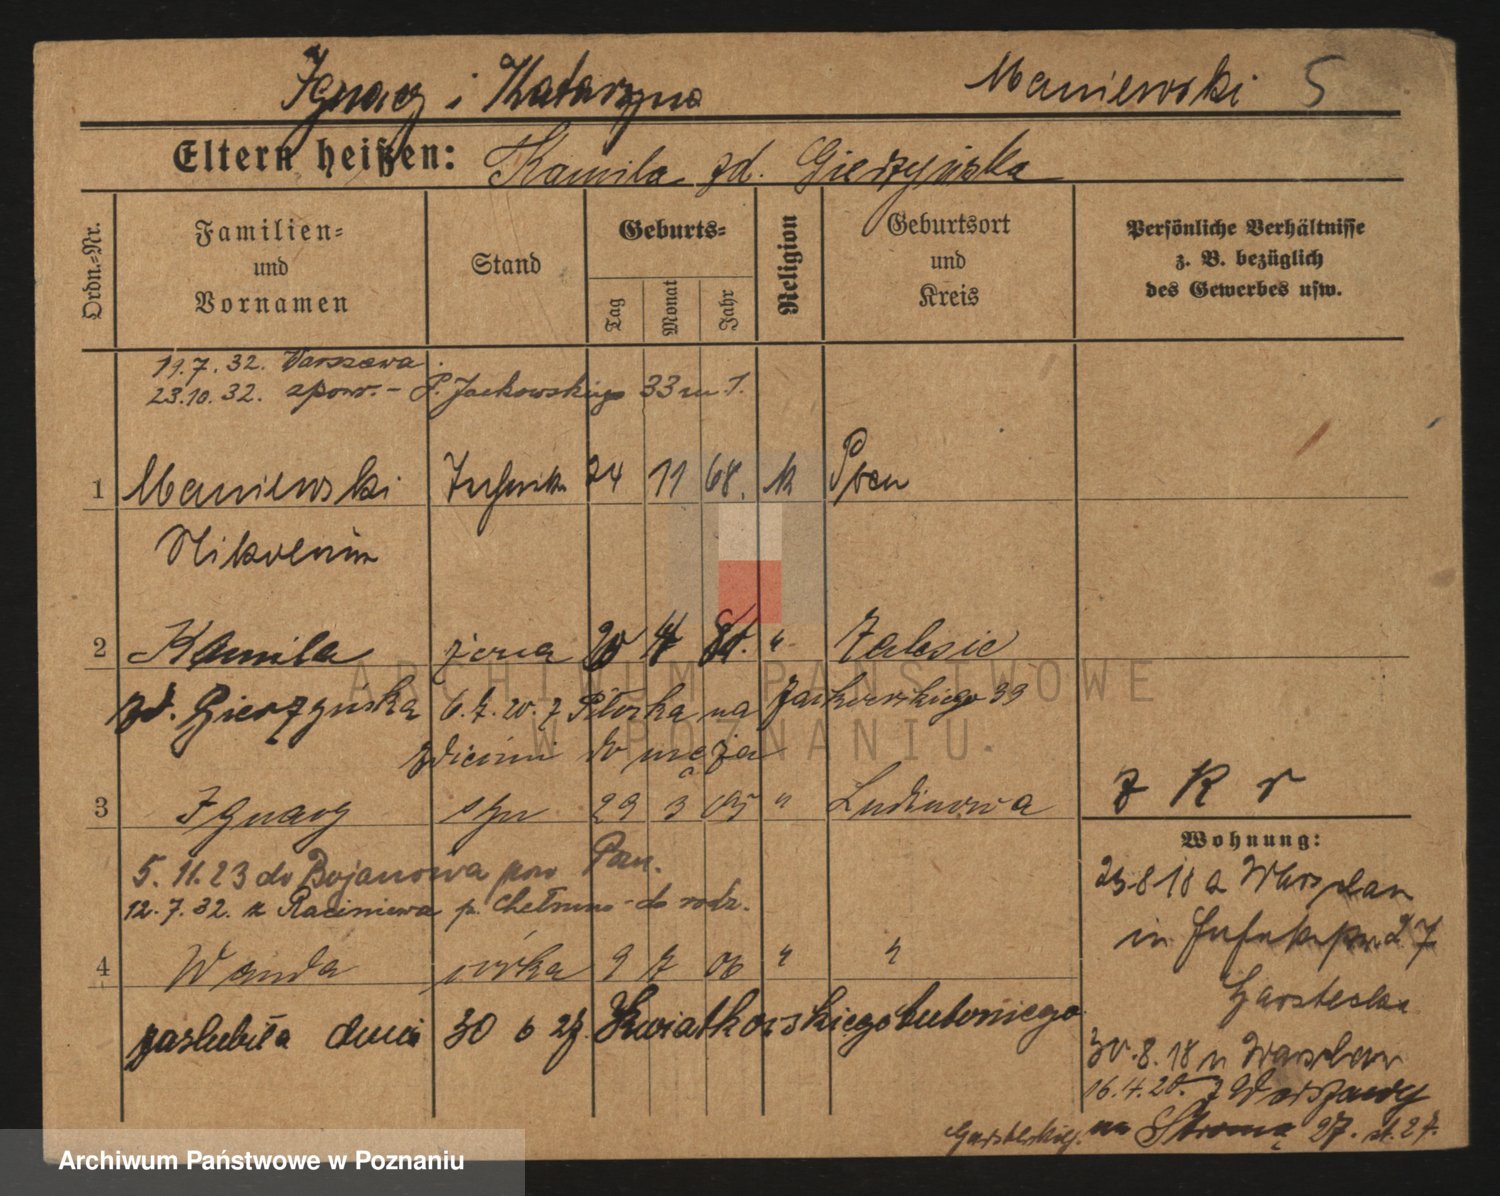 Ignacy i Katarzyna Maniewski 5
Eltern heißen: Kamila zd. Gierzyńska
Ordn.-Nr.
Familien- und Vornamen
Stand
Geburts-
Tag Monat Jahr
Religion
Geburtsort und Kreis
Persönliche Verhältnisse
z. B. bezüglich
des Gewerbes usw.
11.7.32. Warszawa.
23.10.32. zpow. - P. Jackowskiego 33 m 1.
1 Maniewski 24 11 68. k
2 Kamila żona 20 4 " Zalesie
zd. Gierzynska 6.7.20. z na Jackowskiego 33
do męża
3 Ignacy syn 29 3 05 "
5.11.23 do Bojanowa pow
12.7.32. z Raciniewa p. Chełmno - do rodz.
4 Wanda córka 9 7 06 " "
zaslubiła dnia 30 6 27. Kwiatkowskiego Antoniego
Z K r
Wohnung:
23.8.18 a Warschau
in 27
30.8.18 n Warschau
16.4.20. z Warszawy
na Stromą 27. st. 27.
ARCHIWUM PAŃSTWOWE
W POZNANIU.
Archiwum Państwowe w Poznaniu